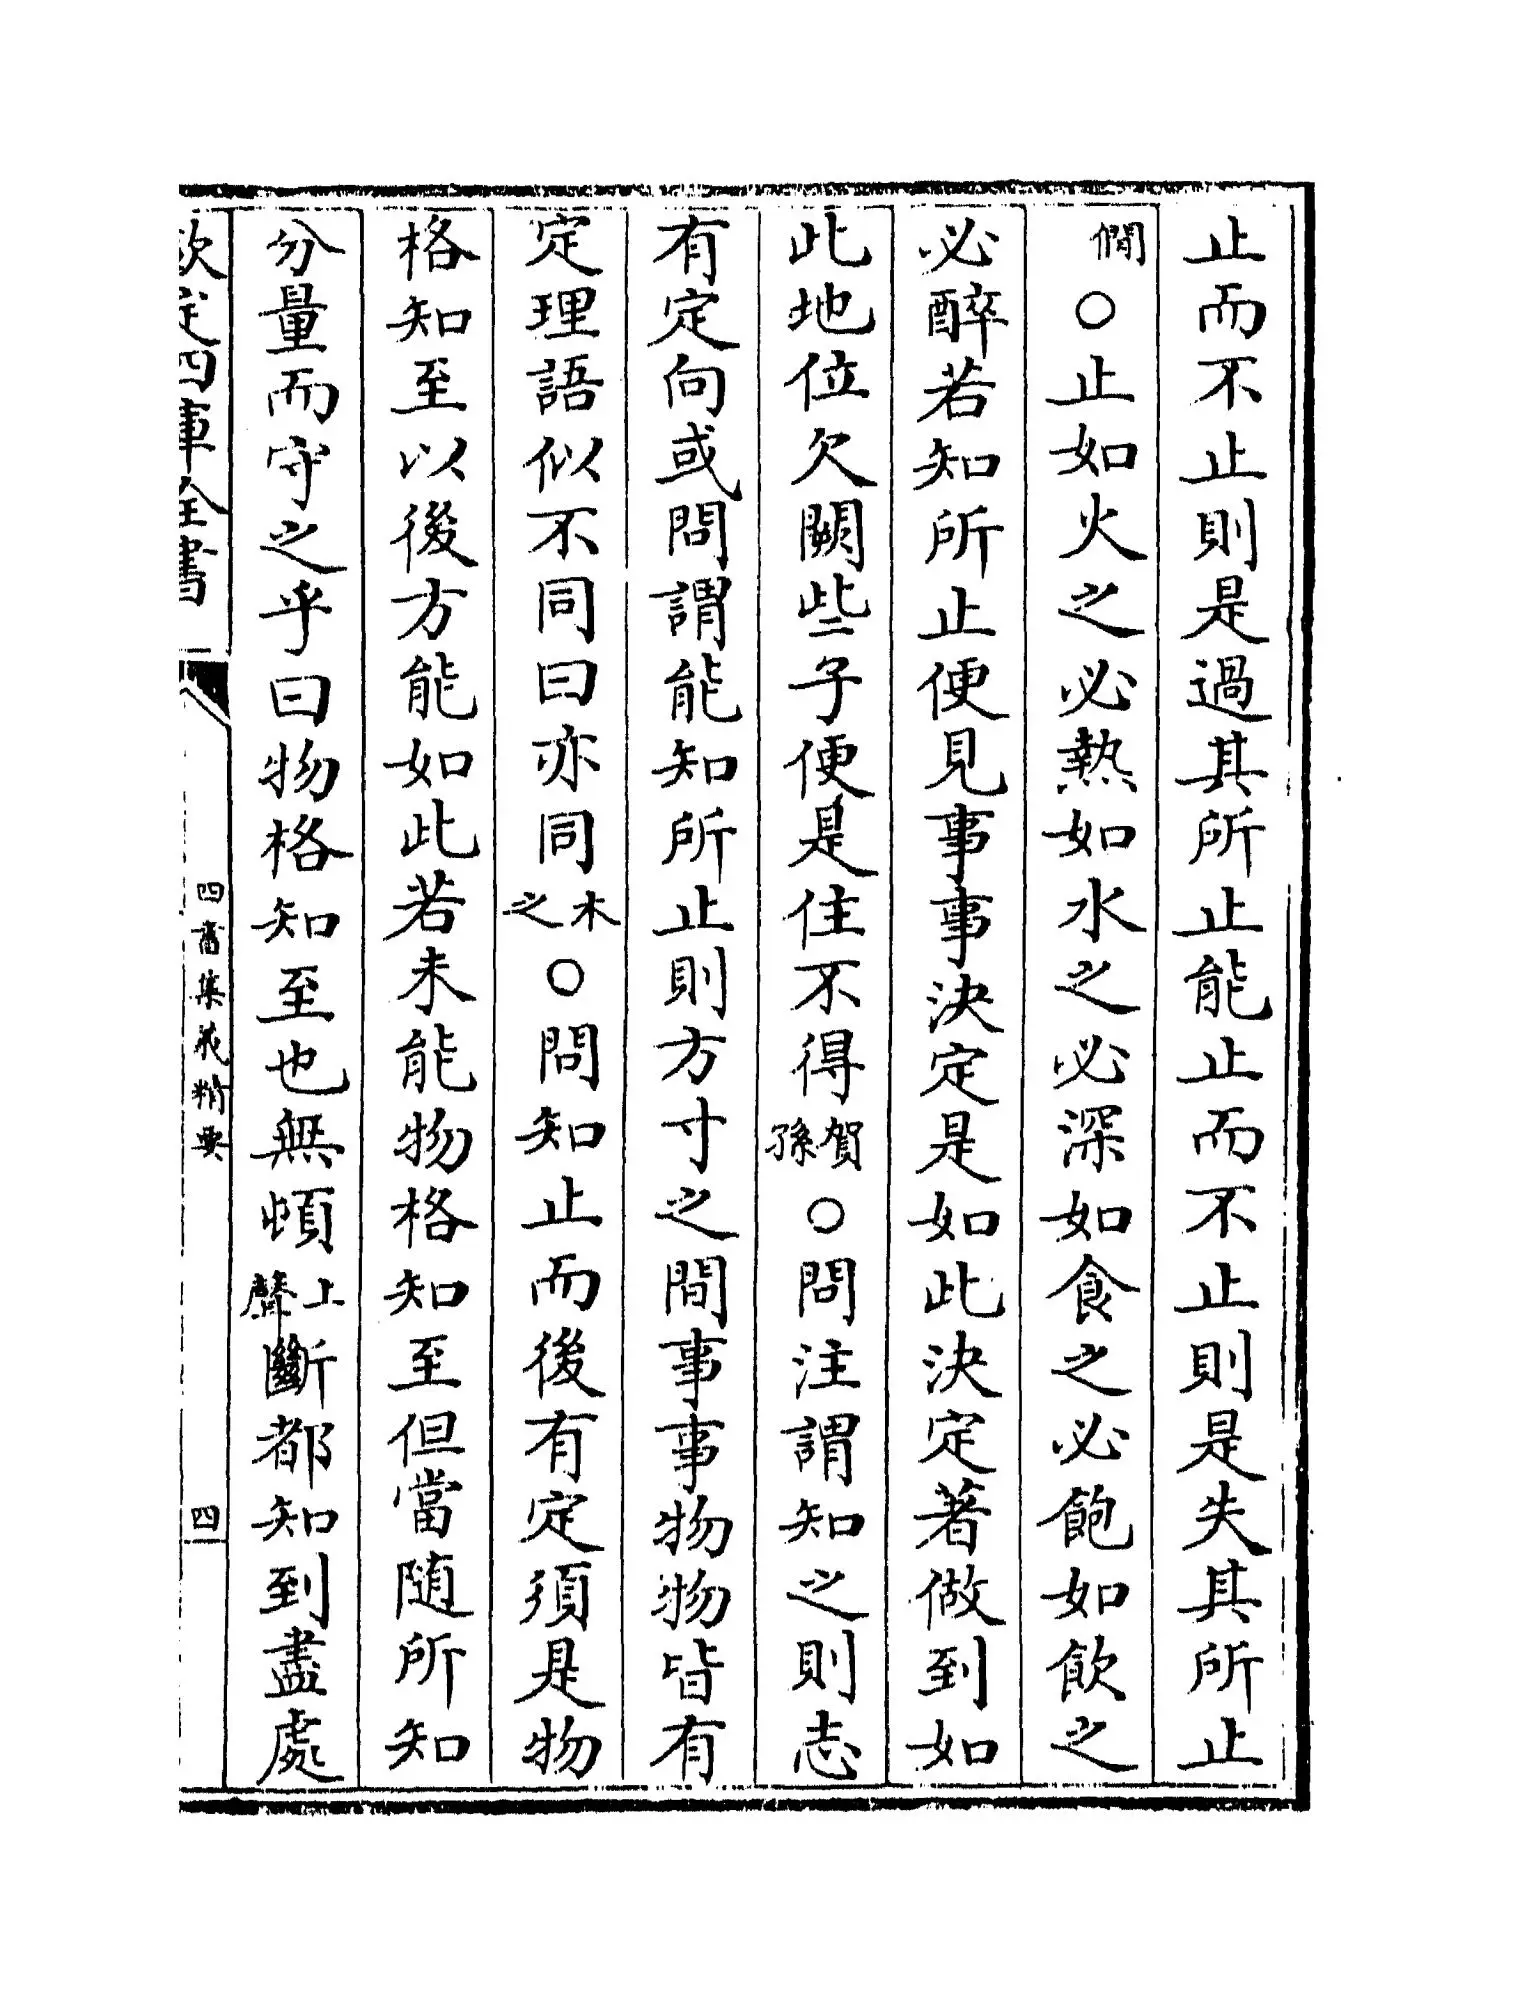 止而不止則是過其所止能止而不止則是失其所止
僩〇止如火之必熱如水之必深如食之必飽如飲之
必醉若知所止便見事事決定是如此決定著做到如
此地位欠闕些子便是住不得賀孫〇問注謂知之則志
有定向或問謂能知所止則方寸之間事事物物皆有
定理語似不同曰亦同木之〇問知止而後有定須是物
格知至以後方能如此若未能物格知至但當随所知
分量而守之乎曰物格知至也無頓上聲斷都知到盡處
欽定四庫全書
四書集義精要
四